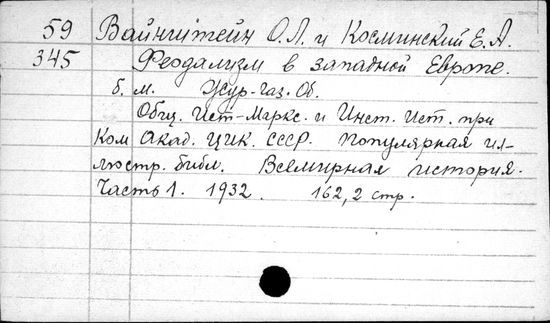 59 Вайнштейн О.Л. и Косминский Е.А.
345 Феодализм в западной Европе.
б. м. Жур-газ. Об.
Общ. Ист-Маркс. и Инст. Ист. при
Ком Акад. ЦИК. СССР. Популярная ил-
люстр. библ. Всемирная история.
Часть 1. 1932. 162,2 стр.